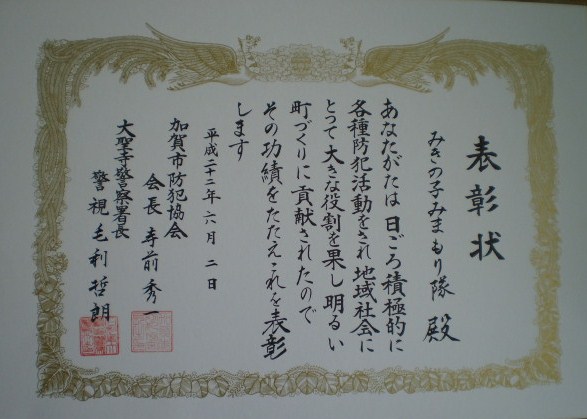 表彰状
みきの子みまもり隊 殿
あなたがたは日ごろ積極的に
各種防犯活動をされ地域社会に
とって大きな役割を果し明るい
町づくりに貢献されたので
その功績をたたえこれを表彰
します
平成二十二年六月二日
加賀市防犯協会
会長 寺前秀一
大聖寺警察署長
警視 毛利哲朗